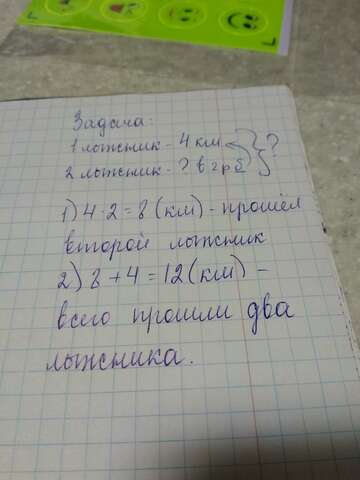 Задача:
1 лыжник - 4 км
2 лыжник - ? в 2 р б } ?
1) 4 · 2 = 8 (км) - прошёл
второй лыжник
2) 8 + 4 = 12 (км) -
всего прошли два
лыжника.